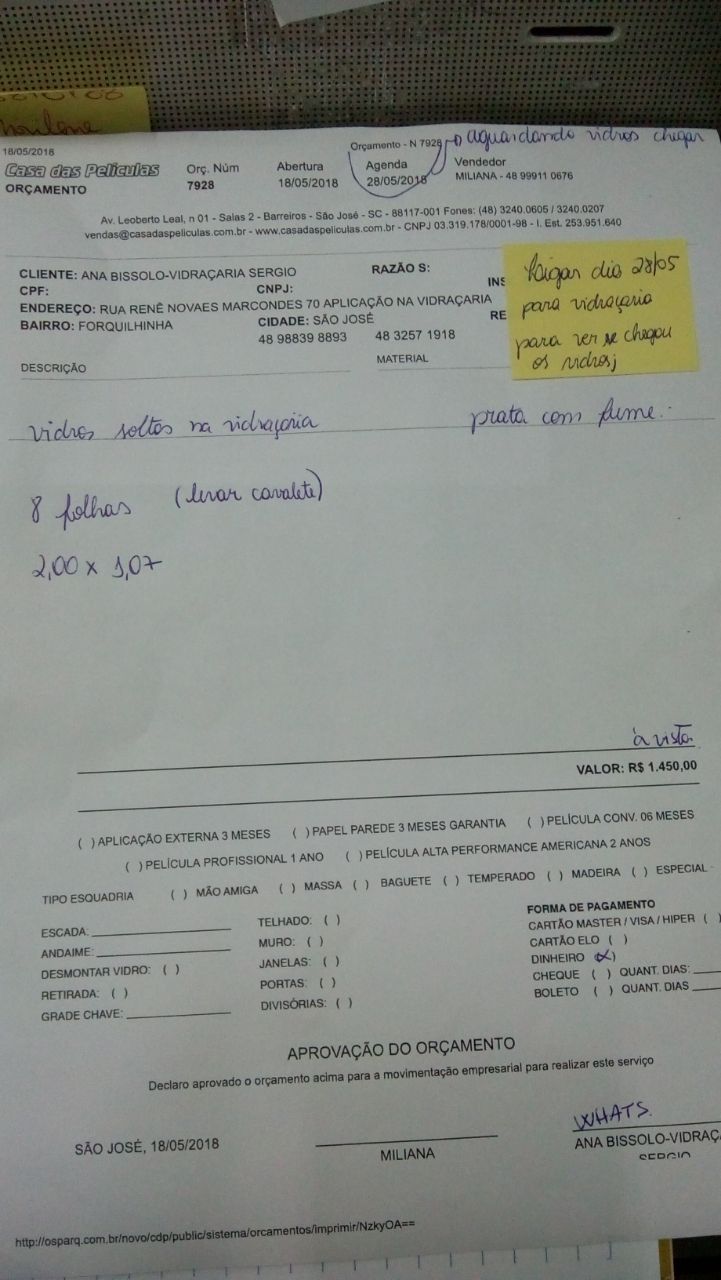 18/05/2018
Orçamento - N 7928 aguardando vidros chegar
Casa das Películas
ORÇAMENTO
Orç. Núm
7928
Abertura
18/05/2018
Agenda
28/05/2018
Vendedor
MILIANA - 48 99911 0676
Av. Leoberto Leal, n 01 - Salas 2 - Barreiros - São José - SC - 88117-001 Fones: (48) 3240.0605 / 3240.0207
vendas@casadaspeliculas.com.br - www.casadaspeliculas.com.br - CNPJ 03.319.178/0001-98 - I. Est. 253.951.640
CLIENTE: ANA BISSOLO-VIDRAÇARIA SERGIO
RAZÃO S:
CPF:
CNPJ:
INS
ENDEREÇO: RUA RENÊ NOVAES MARCONDES 70 APLICAÇÃO NA VIDRAÇARIA
BAIRRO: FORQUILHINHA
CIDADE: SÃO JOSÉ
RE
48 98839 8893
48 3257 1918
DESCRIÇÃO
MATERIAL
Ligar dia 28/05
para vidraçaria
para ver se chegou
os vidros;
vidros soltos na vidraçaria
prata com fume.
8 folhas (levar cavalete)
2,00 x 1,07
à vista
VALOR: R$ 1.450,00
( ) APLICAÇÃO EXTERNA 3 MESES ( ) PAPEL PAREDE 3 MESES GARANTIA ( ) PELÍCULA CONV. 06 MESES
( ) PELÍCULA PROFISSIONAL 1 ANO ( ) PELÍCULA ALTA PERFORMANCE AMERICANA 2 ANOS
TIPO ESQUADRIA ( ) MÃO AMIGA ( ) MASSA ( ) BAGUETE ( ) TEMPERADO ( ) MADEIRA ( ) ESPECIAL
ESCADA:
ANDAIME:
DESMONTAR VIDRO: ( )
RETIRADA: ( )
GRADE CHAVE:
TELHADO: ( )
MURO: ( )
JANELAS: ( )
PORTAS: ( )
DIVISÓRIAS: ( )
FORMA DE PAGAMENTO
CARTÃO MASTER / VISA / HIPER ( )
CARTÃO ELO ( )
DINHEIRO (x)
CHEQUE ( ) QUANT. DIAS:
BOLETO ( ) QUANT. DIAS
APROVAÇÃO DO ORÇAMENTO
Declaro aprovado o orçamento acima para a movimentação empresarial para realizar este serviço
WHATS.
SÃO JOSÉ, 18/05/2018
MILIANA
ANA BISSOLO-VIDRAÇ
SERGIO
http://osparq.com.br/novo/cdp/public/sistema/orcamentos/imprimir/NzkyOA==